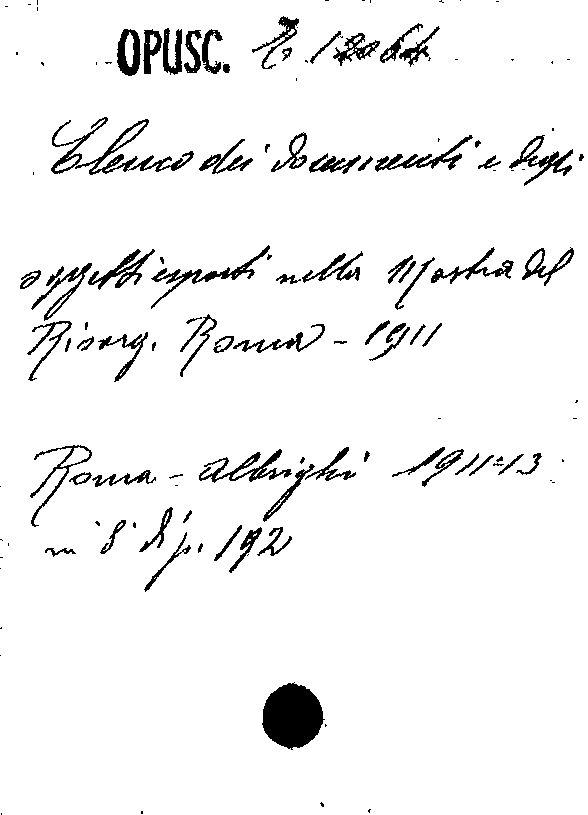 OPUSC. E
Elenco dei documenti e degli
oggetti esposti nella Mostra del
Risorg. Roma - 1911
Roma - Albrighi 1911-13
in 8° di p. 192